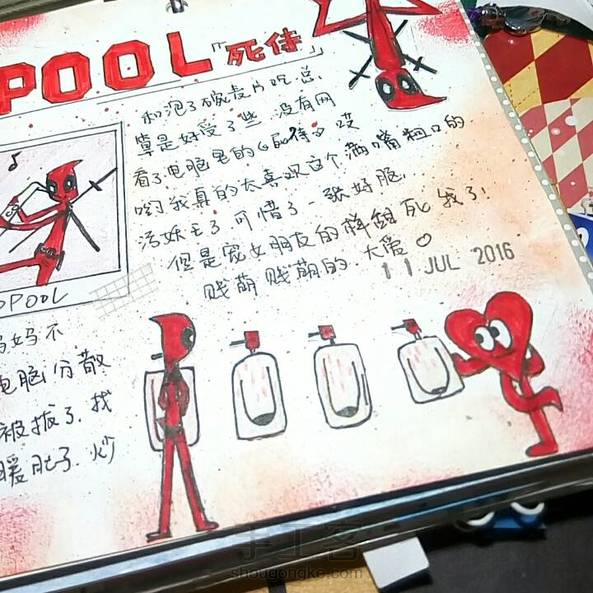 POOL「死侍」
和泡了碗麦片吃.总
算是好受了些.没有网
看了电脑里的《死侍》哎
哟我真的太喜欢这个满嘴粗口的
活妖王了 可惜了一张好脸..
但是宠女朋友的样 死我了!
贱萌贱萌的.大爱♡
11 JUL 2016
DPOOL
妈妈不
电脑分散
被拔了.找
暖肚子.炒
手工客
shougongke.com